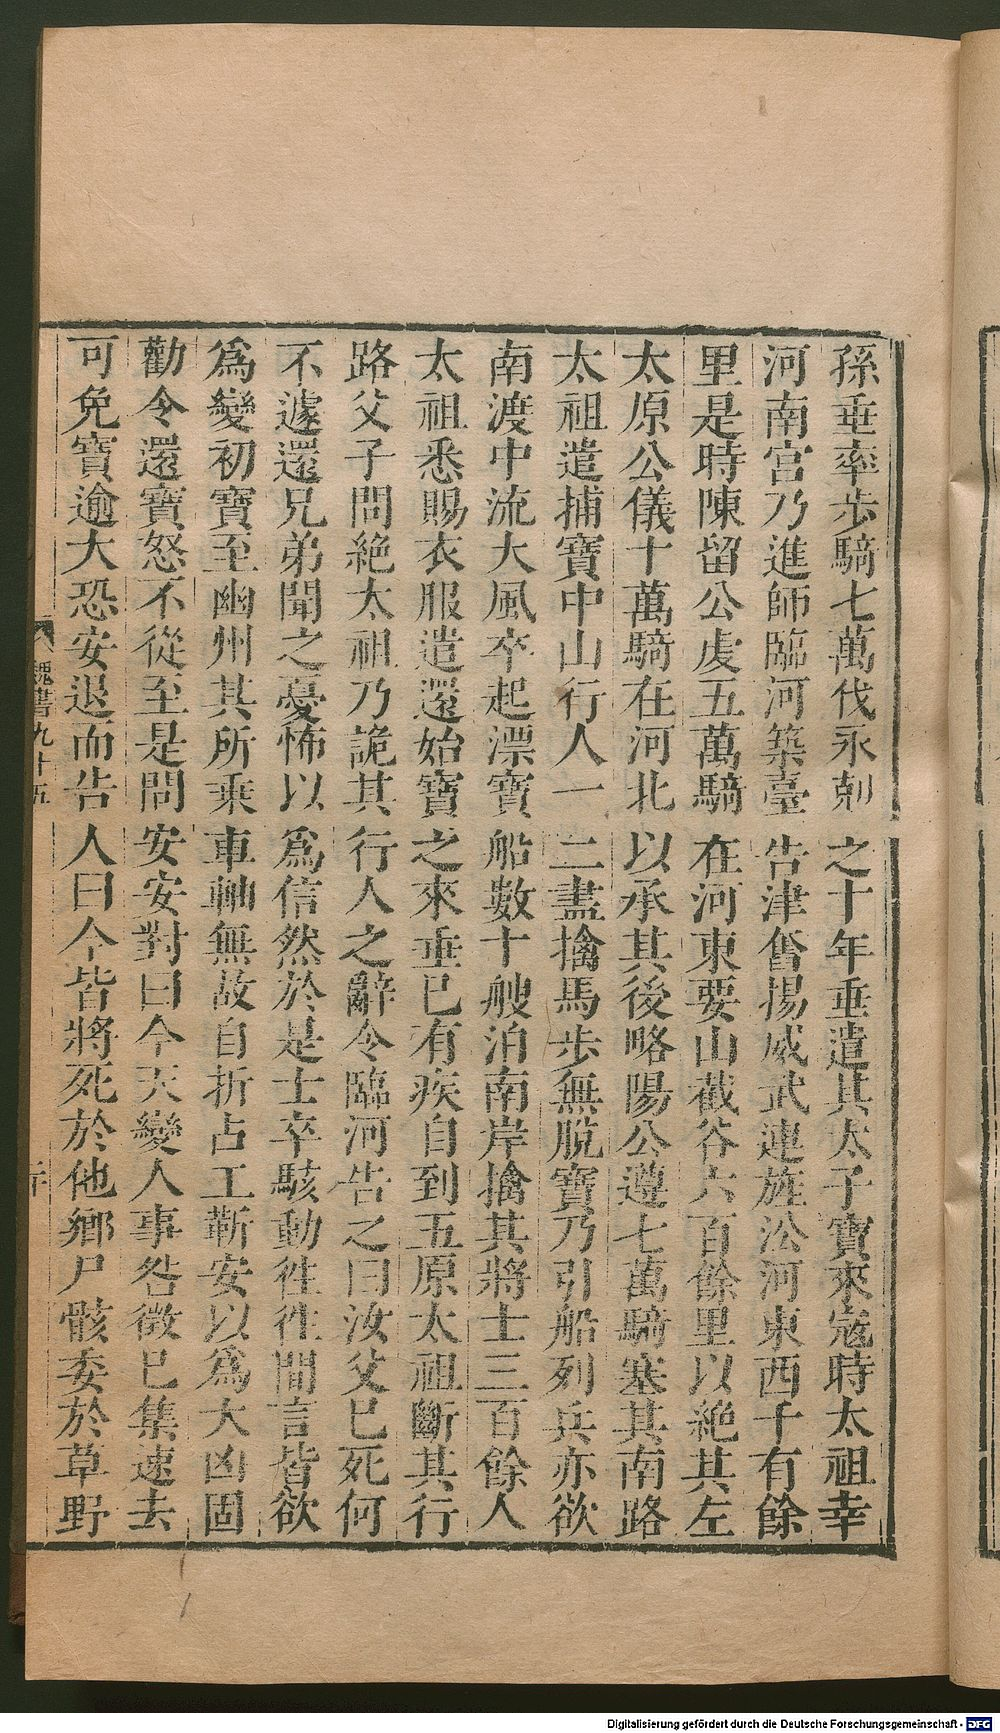 孫垂率步騎七萬伐永剋之十年垂遣其太子寶來寇時太祖幸
河南宮乃進師臨河築臺告津奮揚威武連旌㳂河東西千有餘
里是時陳留公虔五萬騎在河東要山截谷六百餘里以絶其左
太原公儀十萬騎在河北以承其後略陽公遵七萬騎塞其南路
太祖遣捕寶中山行人一二盡擒馬步無脫寶乃引船列兵亦欲
南渡中流大風卒起漂寶船數十艘泊南岸擒其將士三百餘人
太祖悉賜衣服遣還始寶之來垂已有疾自到五原太祖斷其行
路父子問絶太祖乃詭其行人之辭令臨河告之曰汝父已死何
不遽還兄弟聞之憂怖以爲信然於是士卒駭動徃徃間言皆欲
爲變初寶至幽州其所乘車軸無故自折占工靳安以爲大凶固
勸令還寶怒不從至是問安安對曰今天變人事咎徵已集速去
可免寶逾大恐安退而告人曰今皆將死於他鄉尸骸委於草野
魏書九十五
Digitalisierung gefördert durch die Deutsche Forschungsgemeinschaft - DFG